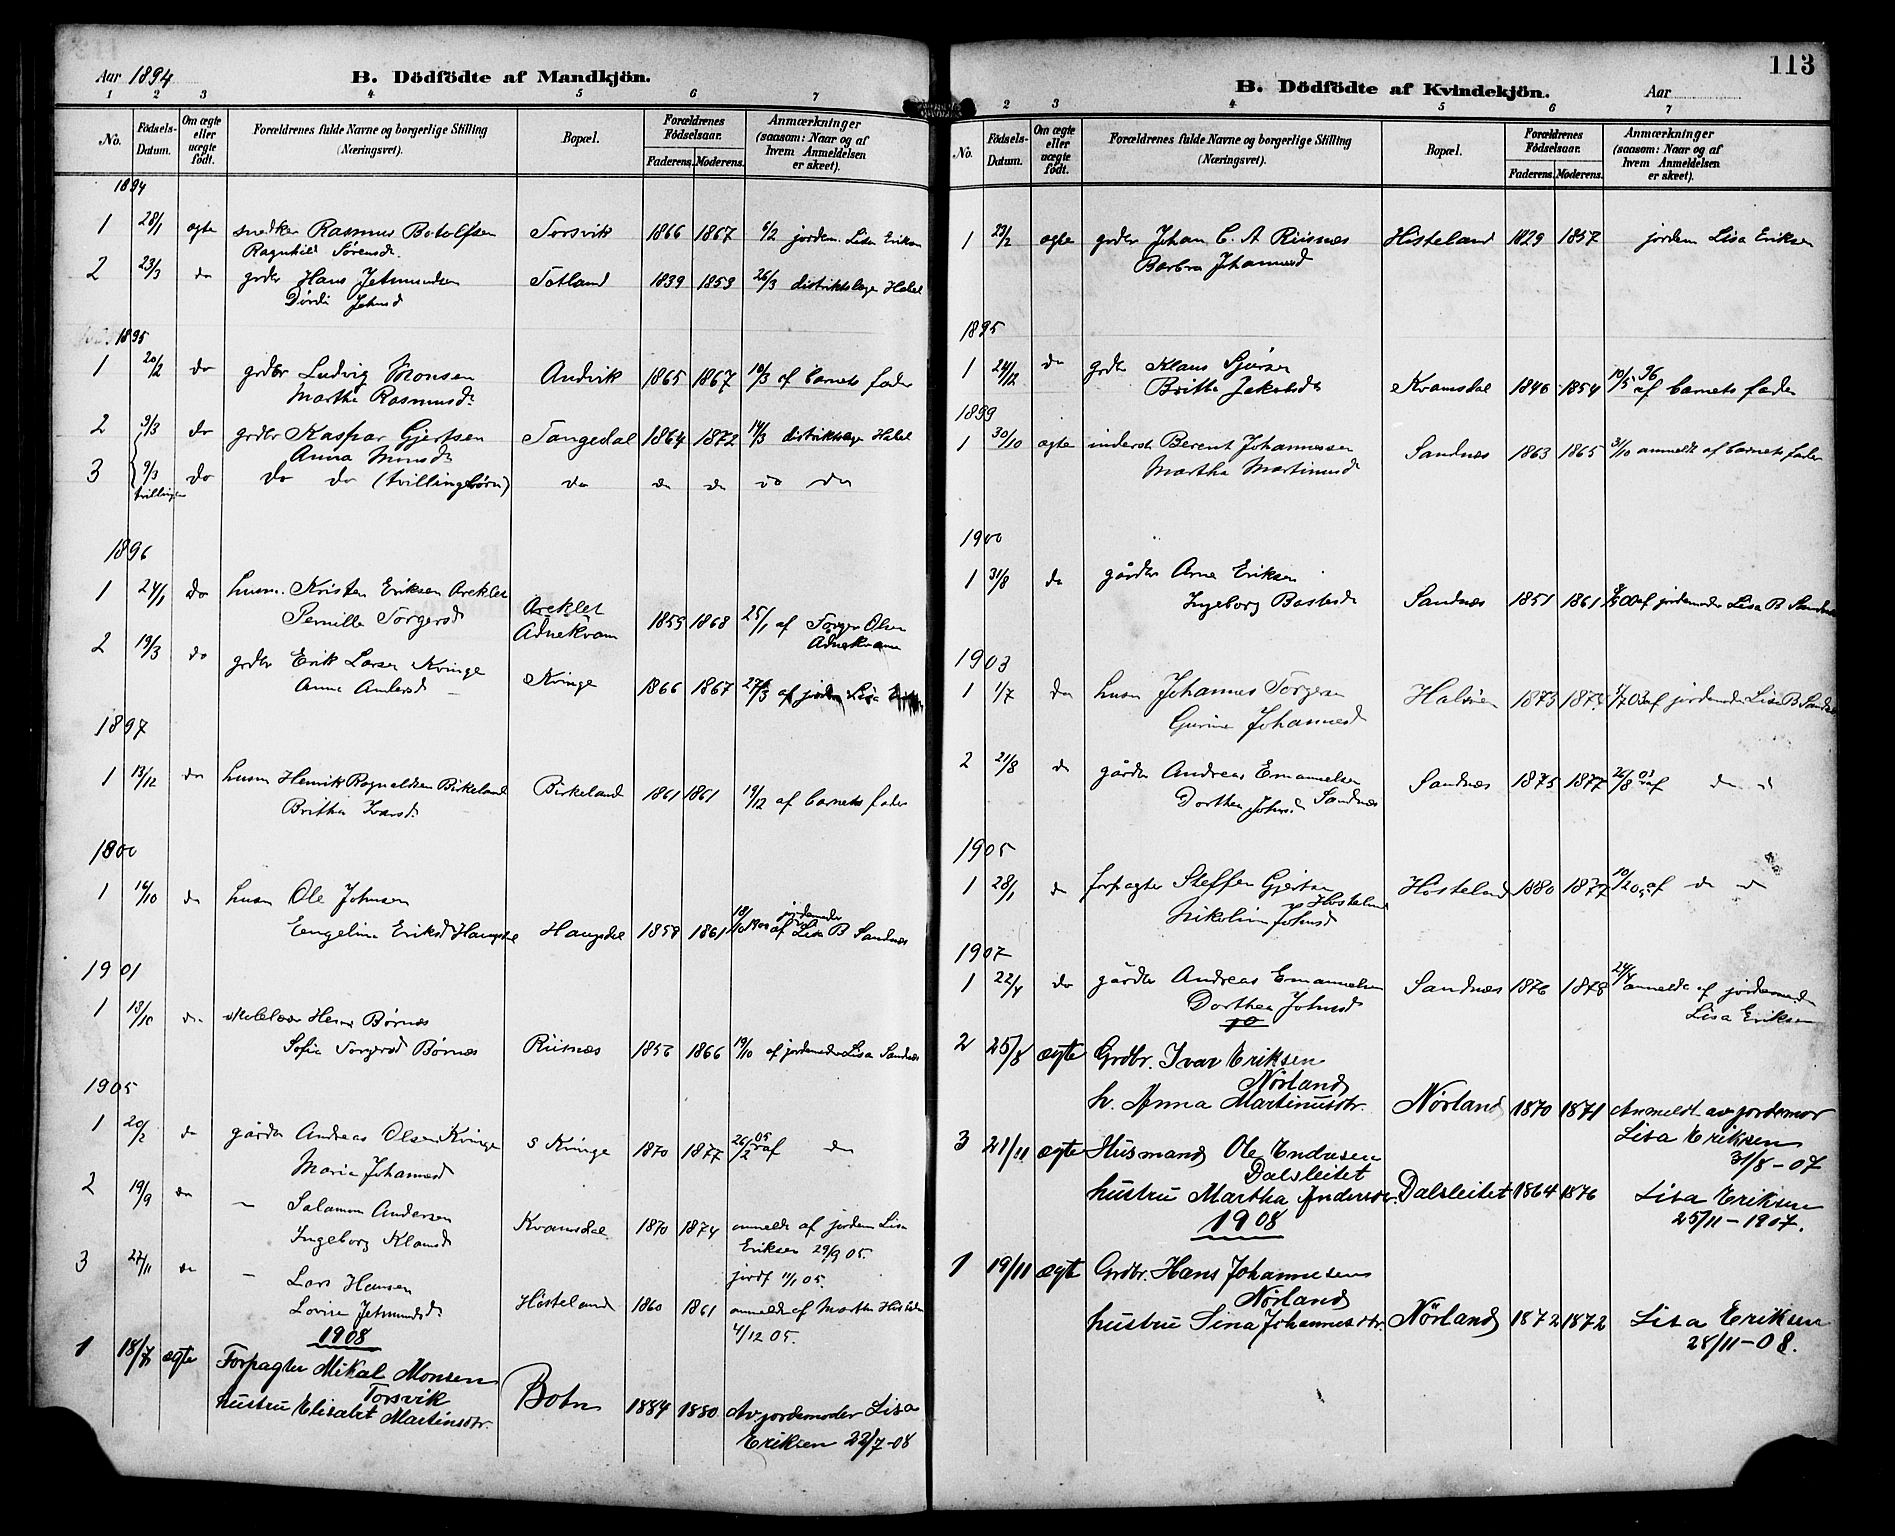 Aar 1894
B. Dödfödte af Mandkjön.
1 2 3 4 5 6 7
No. Födsels-Datum. Om ægte eller uægte födt. Forældrenes fulde Navne og borgerlige Stilling (Næringsvei). Bopæl. Forældrenes Födselsaar. Faderens. Moderens. Anmærkninger (saasom: Naar og af hvem Anmeldelsen er skeet).
1894
1 28/1 ægte snedker Rasmus Botolfsen Torsvik 1866 1867 6/2 jordem. Lisa Eriksen
Ragnhild Sørensd.
2 23/3 do grdbr Hans Jetmundsen Totland 1839 1853 26/3 distriktslæge Habel
Dordi Jetmd
1895
1 20/2 do grdbr Ludvig Monsen Andvik 1865 1867 10/3 af barnets fader
Martha Rasmusd.
2 9/3 do grdbr Kaspar Gjertsen Tangedal 1864 1872 14/3 distriktslæge Habel
Anna Monsd.
3 9/3 do do do (tvillingbørn) do do do do do
tvillinger
1896
1 24/1 do husm. Kristen Eriksen Areklet
Pernille Torgersd Areklet Adnekvam 1855 1868 25/1 af Torger Olsen
Adnekvam
2 19/3 do grdbr Erik Larsen Kvinge
Anna Andersd Kvinge 1866 1867 27/3 af jordem Lisa
1897
1 13/12 do husm Henrik Ragnaldsen Birkeland Birkeland 1861 1861 19/12 af barnets fader
Britha Ivarsd.
1800
1 16/10 do husm Ole Johnsen
Engeline Eriksd Haugsdal Haugsdal 1858 1861 18/10 1900 af jordemoder Lisa B Sandnæs
1901
1 13/10 do skolelærer Børnæs
Sofie Torgersd Børnæs Riisnæs 1856 1866 19/10 af jordemoder Lisa Sandnæs
1905
1 20/2 do gårdbr Andreas Olsen Kvinge S Kvinge 1870 1877 26/2 05 af do
Maria Johannesd
2 19/9 do — Salamon Andersen
Ingeborg Klausd Kvamsdal 1870 1874 anmeldt af jordem Lisa
Eriksen 29/9 05.
3 27/11 do — Lars Hansen jordf 11/1 05.
Lovise Jetmundsd. Hósteland 1860 1861 anmeldt af Martha
4/12 05.
1908
1 18/7 ægte Forpagter Mikal Monsen
Torsvik
hustru Elisabet Martinsdtr. Botn 1884 1880 Av jordemoder Lisa
Eriksen 22/7-08
113
B. Dödfödte af Kvindekjön.
Aar
2 3 4 5 6 7
No. Födsels-Datum. Om ægte eller uægte födt. Forældrenes fulde Navne og borgerlige Stilling (Næringsvei). Bopæl. Forældrenes Födselsaar. Faderens. Moderens. Anmærkninger (saasom: Naar og af hvem Anmeldelsen er skeet).
1 23/2 ægte grdbr Johan C. A Riisnæs Histeland 1829 1857 jordem Lisa Eriksen
Barbra Johannesd
1895
1 24/12 do grdbr Klaus Sjursen
Britha Jakobsd. Kvamsdal 1846 1854 10/5 96 af barnets fader
1899
1 30/10 ægte inderst Berent Johannessen Sandnæs 1863 1865 31/10 anmeldt af barnets fader
Martha Martinusd
1900
1 31/8 do gårdbr Arne Eriksen
Ingeborg Sandnæs 1851 1861 af jordemoder Lisa B Sandnæs
1903
1 1/7 do husm Johannes Torgersen Halsøen 1873 af jordemoder Lisa B Sandnæs
Gurine Johannesd
2 21/8 do gårdbr Andreas Emanuelsen Sandnæs 1875 1877 26/8 03 af do do
Dorthea Johnsd. Sandnæs
1905
1 28/1 do forpagter Steffen Gjertsen Hósteland 1880 1877 af do do
Hósteland
Nikoline Johnsd
1907
1 22/4 do gårdbr Andreas Emanuelsen Sandnæs 1876 1878 24/4 anmeldt af jordemoder
Dorthea Johnsd Lisa Eriksen
2 25/8 ægte Grdbr. Ivar Eriksen
Nórland
h. Anna Martinusdtr. Nórland 1870 1871 Anmeldt av jordemor
Lisa Eriksen
31/8-07
3 21/11 ægte Husmand Ole Endresen
Dalsleitet
hustru Martha Andersdtr. Dalsleitet 1864 1876 Lisa Eriksen
25/11-1907.
1908
1 19/11 ægte Grdbr. Hans Johannesen
Nórland
hustru Sina Johannesdtr. Nórland 1872 1872 Lisa Eriksen
28/11-08.